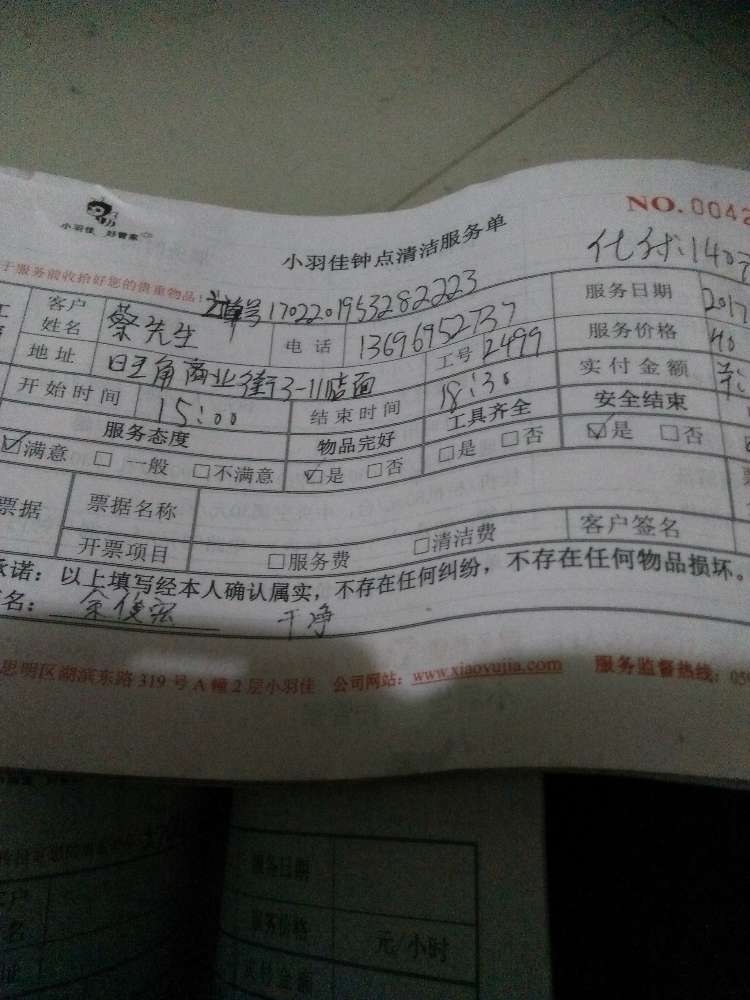 小羽佳 好管家
NO.0042
小羽佳钟点清洁服务单
于服务前收拾好您的贵重物品!
单号170220195328 2223
客户姓名 蔡先生 电话 13696952737 服务日期 2017
地址 旺角商业街3-11店面 工号 2499 服务价格 40
开始时间 15:00 结束时间 18:30 实付金额
服务态度 物品完好 工具齐全 安全结束
☑满意 □一般 □不满意 ☑是 □否 □是 □否 ☑是 □否
票据 票据名称
开票项目 □服务费 □清洁费 客户签名
承诺:以上填写经本人确认属实,不存在任何纠纷,不存在任何物品损坏。
名: 干净
思明区湖滨东路319号A幢2层小羽佳 公司网站:www.xiaoyujia.com 服务监督热线:059
服务日期
服务价格 元/小时
实付金额